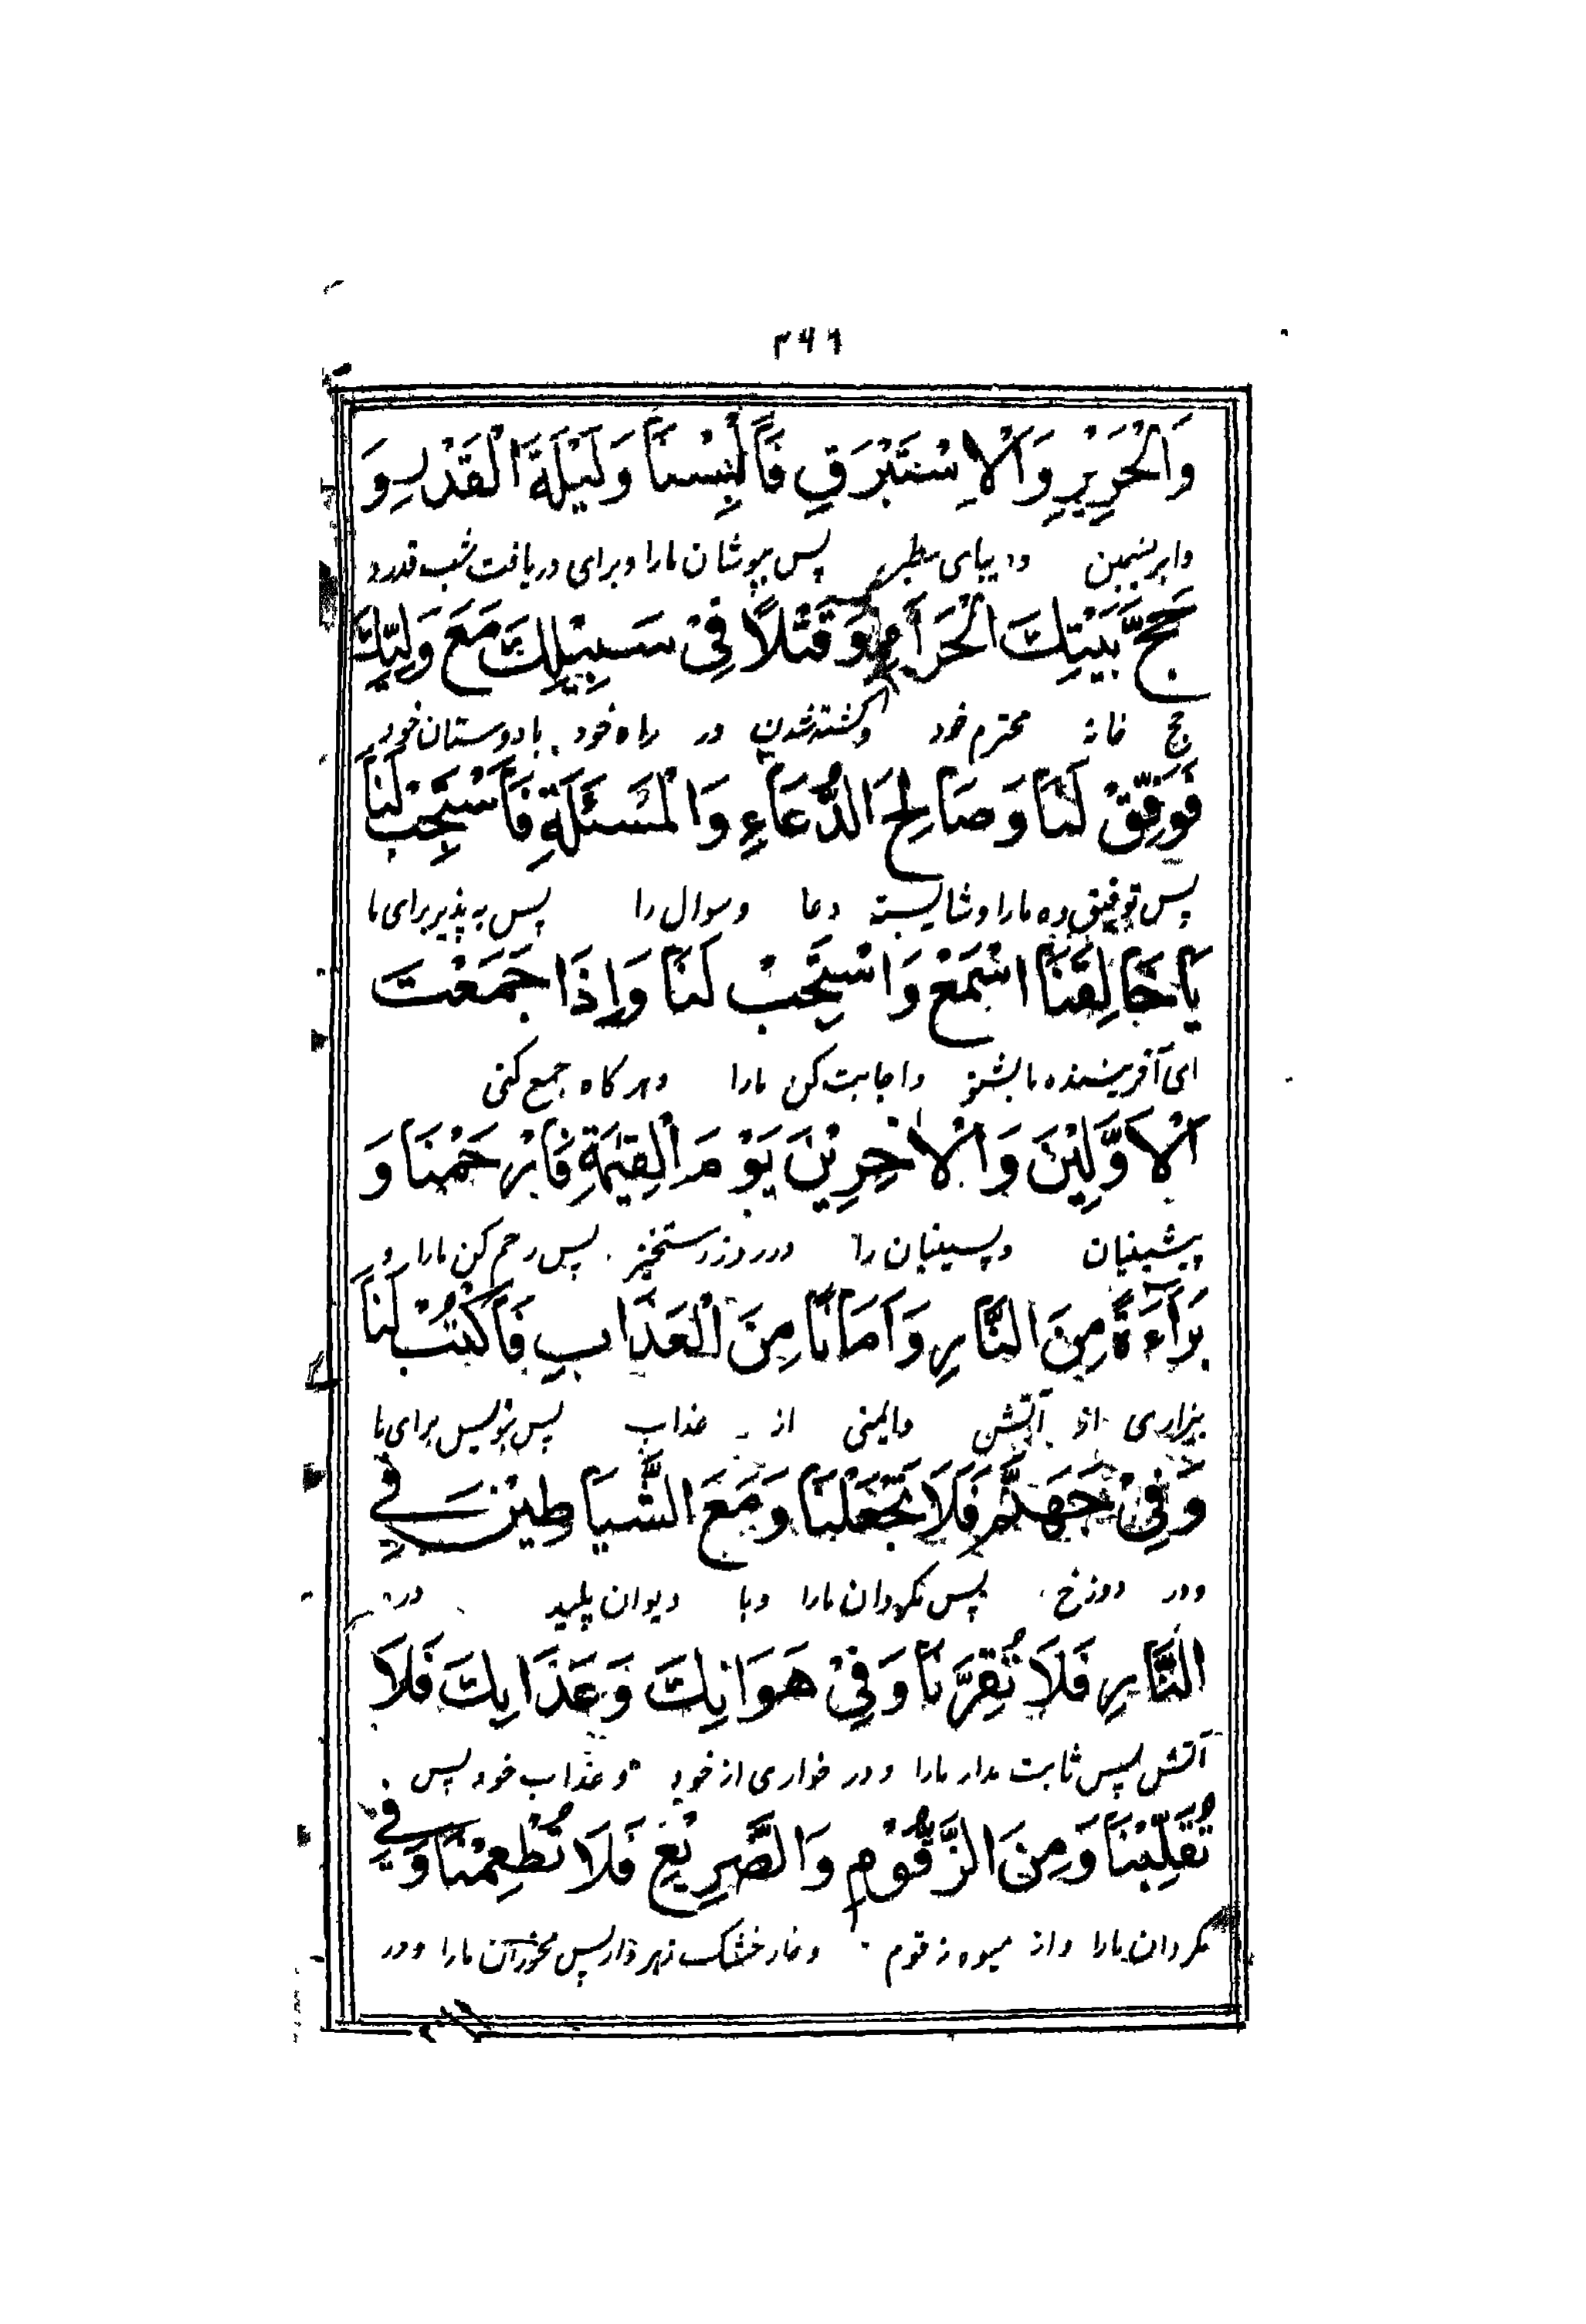 ۲۶۶
وَالْحَرِيْرِ وَالْاِسْتَبْرَقِ فَاَلْبِسْنَا وَلَيْلَةَ الْقَدْرِ وَ
وابریشمین ودیبای سطبر پس بپوشان مارا وبرای دریافت شب قدر و
حَجَّ بَيْتِكَ الْحَرَامِ وَقَتْلًا فِىْ سَبِيْلِكَ مَعَ وَلِيِّكَ
حج خانه محترم خود وکشته شدن در راه خود با دوستان خود
فَوَفِّقْ لَنَا وَصَالِحَ الدُّعَاءِ وَالْمَسْئَلَةِ فَاسْتَجِبْ لَنَا
پس توفیق ده مارا وشایسته دعا وسوال را پس به پذیر برای ما
يَا خَالِقَنَا اسْمَعْ وَاسْتَجِبْ لَنَا وَاِذَا جَمَعْتَ
ای آفریننده ما بشنو واجابت کن مارا وهرکاه جمع کنی
الْاَوَّلِيْنَ وَالْاٰخِرِيْنَ يَوْمَ الْقِيٰمَةِ فَارْحَمْنَا وَ
پیشینیان وپسینیان را در روز رستخیز پس رحم کن مارا و
بَرَاءَةً مِنَ النَّارِ وَاَمَانًا مِنَ الْعَذَابِ فَاكْتُبْ لَنَا
بیزاری از آتش وایمنی از عذاب پس بنویس برای ما
وَفِىْ جَهَنَّمَ فَلَا تَجْعَلْنَا وَمَعَ الشَّيَاطِيْنِ فِي
ودر دوزخ پس مکردان مارا وبا دیوان پلید در
النَّارِ فَلَا تُقِرَّنَا وَفِىْ هَوَانِكَ وَعَذَابِكَ فَلَا
آتش پس ثابت مدار مارا ودر خواری از خود و عذاب خود پس
تُقَلِّبْنَا وَمِنَ الزَّقُّوْمِ وَالضَّرِيْعِ فَلَا تُطْعِمْنَا وَفِي
مکردان مارا واز میوه زقوم وخار خشک زهردار پس مخوران مارا ودر